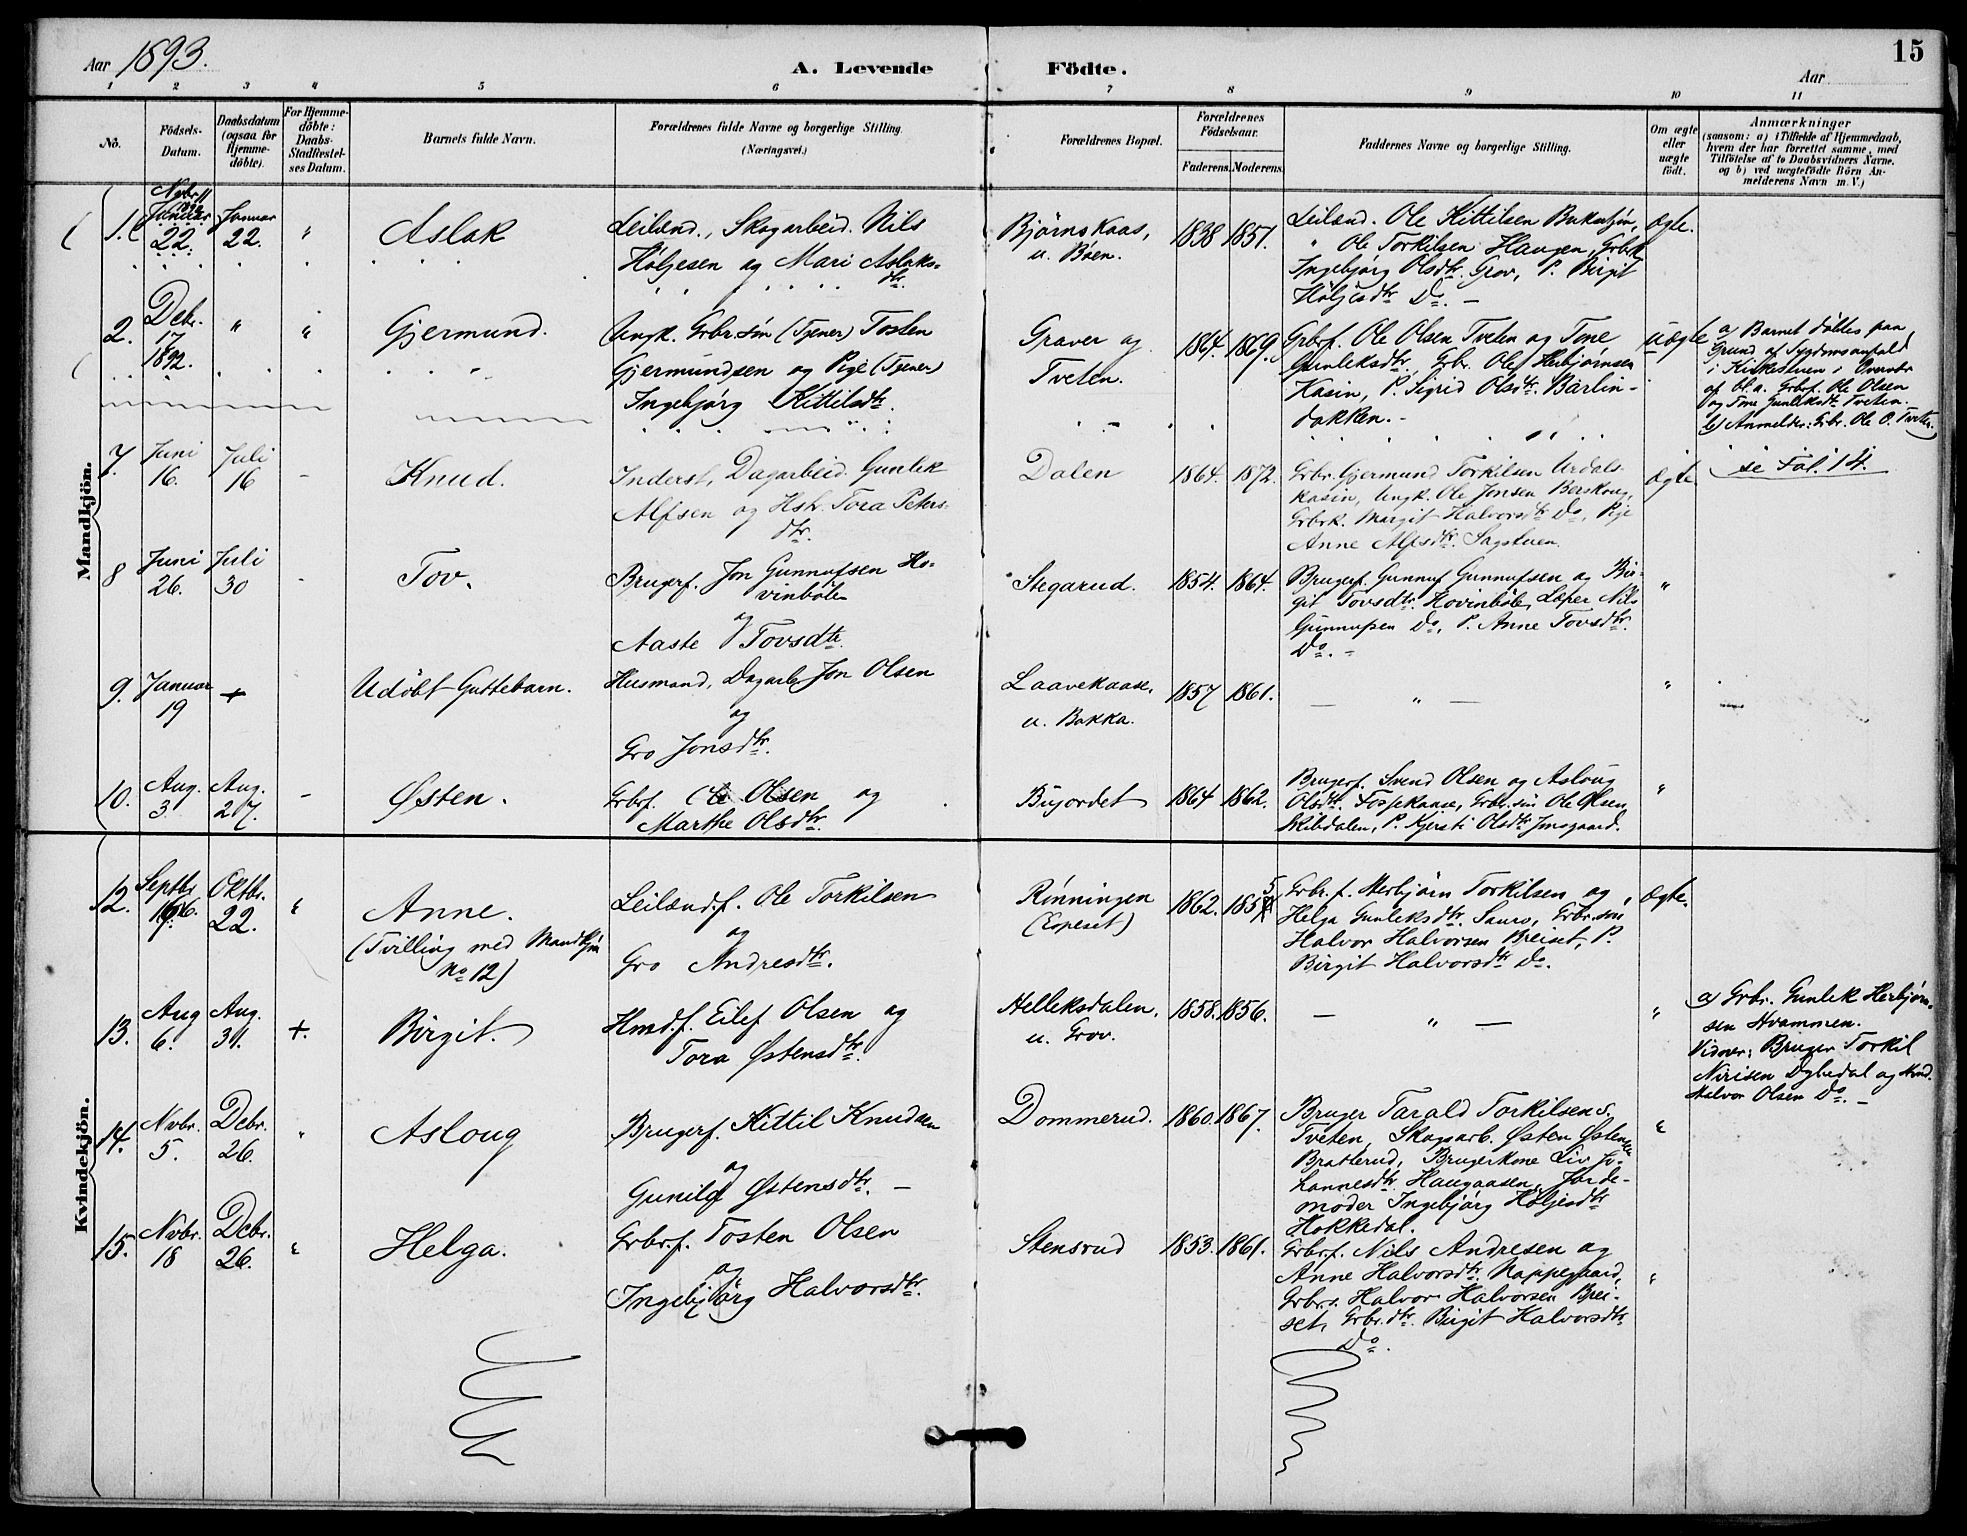 Aar 1893.
A. Levende Födte.
15
Aar
1 2 3 4 5 6 7 8 9 10 11
No.
Födsels-Datum.
Daabsdatum (ogsaa for Hjemme-döbte).
For Hjemme-döbte: Daabs-Stadfæstel-ses Datum.
Barnets fulde Navn.
Forældrenes fulde Navne og borgerlige Stilling.
(Næringsvei.)
Forældrenes Bopæl.
Forældrenes Födselsaar.
Faderens. Moderens.
Faddernes Navne og borgerlige Stilling.
Om ægte eller uægte födt.
Anmærkninger
(saasom: a) i Tilfælde af Hjemmedaab,
hvem der har forrettet samme, med
Tilföielse af to Daabsvidners Navne.
og b) ved uægtefödte Börn An-
melderens Navn m. V.)
Mandkjön.
1. Januar 22. Januar 22. "
Aslak
Leilænd., Skogarbeid. Nils
Høljesen og Mari Aslaks-
dtr.
Bjørnskaas,
u. Bøen.
1838 1851.
Leilænd. Ole Kittilsen
" Ole Torkilsen Haugen, Grbrk.
Ingebjørg Olsdtr. Grov, P. Birgit
Høljesdtr. Do. -
Ægte.
2. Debr. 17 1892. " "
Gjermund.
Ungk. Grbr.søn (Tjener) Tosten
Gjermundsen og Pige (Tjener)
Ingebjørg Kittilsdtr.
Graver og
Tveten.
1864. 1869.
Grbrf. Ole Olsen Tveten og Tone
Gunleksdtr., Grbr. Ole Herbjørnsen
Kasin, P. Sigrid Olsdtr. Barlin-
dokken. -
uægte
a) Barnet døbtes paa
Grund af Sygdomsanfald
i Kirkestuen i Overvær
af bl. a. Grbrf. Ole Olsen
og Tone Gunleksdtr. Tveten.
b) Anmelder: Grbr. Ole O. Tveten.
7. Juni 16. Juli 16 -
Knud.
Inderst, Dagarbeid. Gunlek
Alfsen og Hstr. Tora Peters-
dtr.
Dalen
1864. 1872.
Grbr. Gjermund Torkilsen Urdals-
kasin, Ungk. Ole Jonsen Berskoug,
Grbrk. Margit Halvorsdtr. Do, Pige
Anne Alfsdtr. Sagstuen.
Ægte
se Fol. 14.
8 Juni 26. Juli 30 -
Tov.
Brugerf. Jon Gunnufsen Ho-
vinbøle
og
Aaste Tovsdtr.
Stegarud.
1854. 1864.
Brugerf. Gunnuf Gunnufsen og Bir-
git Tovsdtr. Hovinbøle, Løper Nils
Gunnufsen Do, P. Anne Tovsdtr.
Do. -
"
9. Januar 19 +
Udøbt Guttebarn.
Husmand, Dagarb. Jon Olsen
og
Gro Jonsdtr.
Laavekaase,
u. Bakka.
1857 1861.
- " -
"
10. Aug. 3. Aug. 27. -
Østen.
Grbrf. Ole Olsen og
Marthe Olsdtr.
Bujordet
1864 1862.
Brugerf. Svend Olsen og Asloug
Olsdtr. Fossekaase, Grbr.søn Ole Olsen
Skibdalen, P. Kjersti Olsdtr. Jmsgaard.
"
Kvindekjön.
12. Septbr. 16. Oktbr. 22. "
Anne.
(Tvilling med Mandkjøn
No 12)
Leilænd.f. Ole Torkilsen
og
Gro Andresdtr.
Rønningen
(Espeset)
1862. 1855
Grbr.f. Herbjørn Torkilsen og
Helga Gunleksdtr. Sauro, Grbr.søn
Halvor Halvorsen Breiset, P.
Birgit Halvorsdtr. Do.
Ægte.
13. Aug 6. Aug. 31. +.
Birgit.
Hmd.f. Eilef Olsen og
Tora Østensdtr.
Helleksdalen,
u. Grov.
1858. 1856.
- " -
"
a) Grbr. Gunlek Herbjørn-
sen Hvammen.
Vidner: Bruger Torkil
Nirisen Dybedal og Hmd.
Halvor Olsen Do. -
14. Nvbr. 5. Debr. 26. "
Asloug
Brugerf. Kittil Knudsen
og
Gunild Østensdtr. -
Dommerud.
1860. 1867.
Bruger Tarald Torkilsen s.
Tveten, Skogsarb. Østen Østensen
Bratterud, Brugerkone Liv Jo-
hannesdtr. Haugaasen, Jorde-
moder Ingebjørg Høljesdtr.
Hokkedal.
"
15. Nvbr. 18 Debr. 26. "
Helga.
Grbr.f. Tosten Olsen
og
Ingebjørg Halvorsdtr.
Stensrud
1853. 1861.
Grbrf. Nils Andresen og
Anne Halvorsdtr. Nappegaard,
Grbr.s. Halvor Halvorsen Brei-
set, Grbr.dtr. Birgit Halvorsdtr.
Do.
"